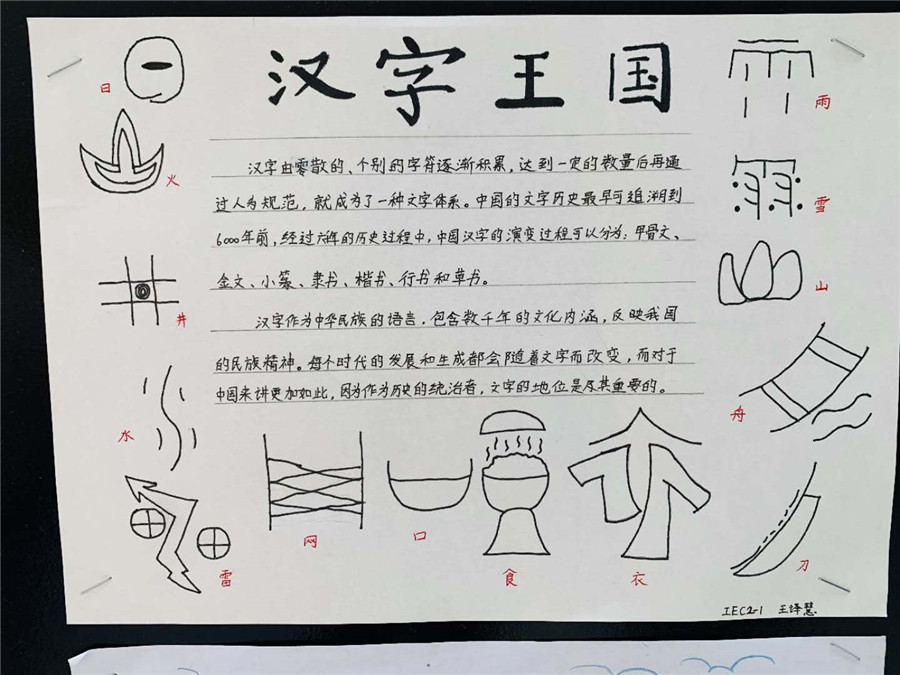 汉字王国
汉字由零散的、个别的字符逐渐积累,达到一定的数量后再通
过人为规范,就成为了一种文字体系。中国的文字历史最早可追溯到
6000年前,经过六年的历史过程中,中国汉字的演变过程可以分为:甲骨文、
金文、小篆、隶书、楷书、行书和草书。
汉字作为中华民族的语言,包含数千年的文化内涵,反映我国
的民族精神。每个时代的发展和生成都会随着文字而改变,而对于
中国来讲更加如此,因为作为历史的统治者,文字的地位是尽其重要的。
日
火
井
水
雷
网
口
食
衣
雨
雪
山
舟
刀
IEC2-1 王译慧